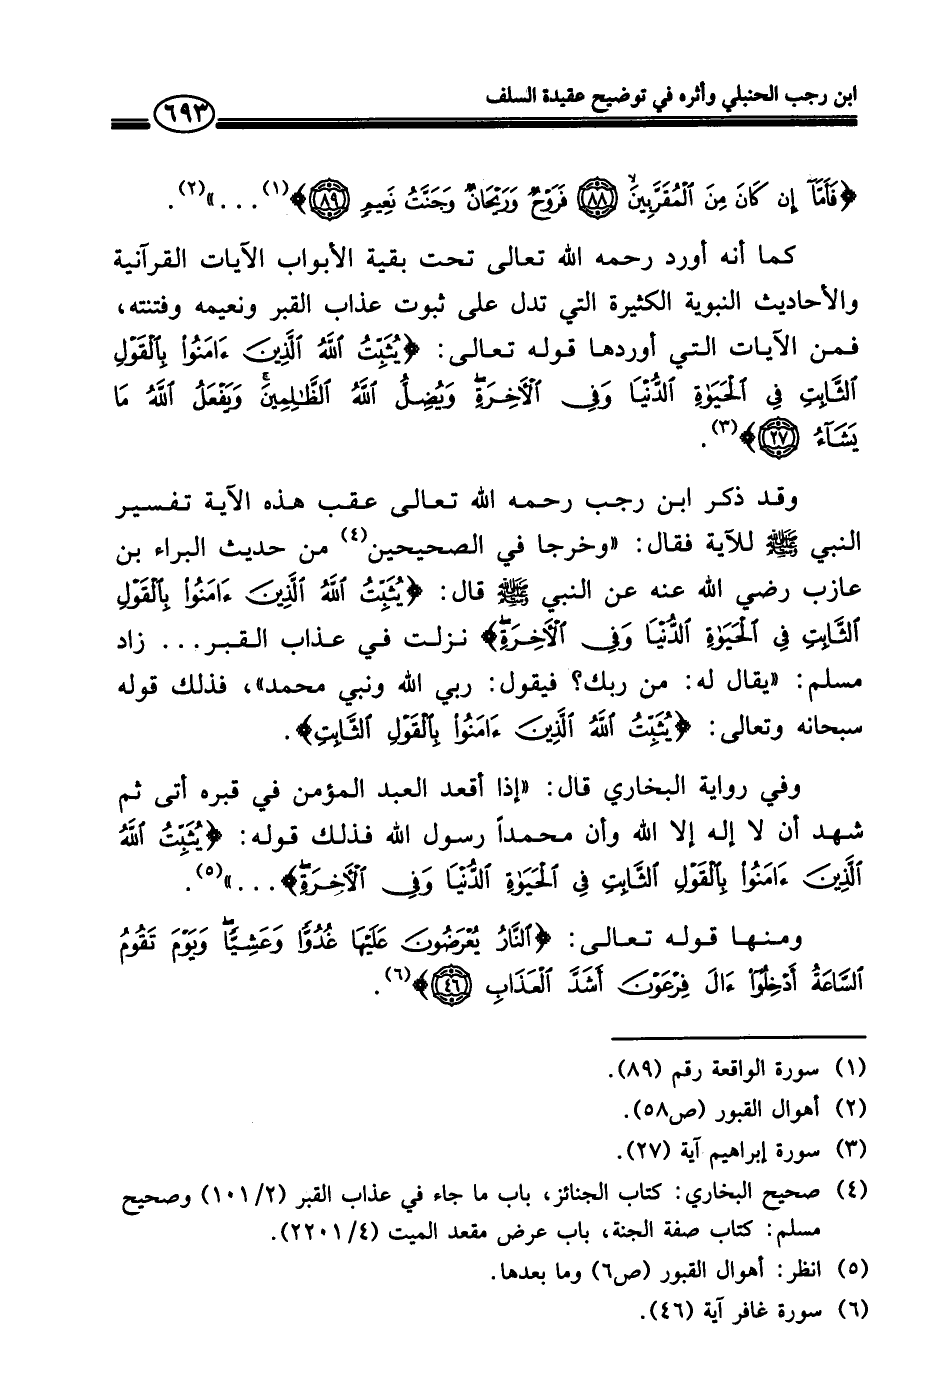 ابن رجب الحنبلي وأثره في توضيح عقيدة السلف
٦٩٣
﴿فَأَمَّآ إِن كَانَ مِنَ ٱلْمُقَرَّبِينَۙ ۝٨٨ فَرَوْحٌ وَرَيْحَانٌ وَجَنَّتُ نَعِيمٍ ۝٨٩﴾(١)...»(٢).
كما أنه أورد رحمه الله تعالى تحت بقية الأبواب الآيات القرآنية
والأحاديث النبوية الكثيرة التي تدل على ثبوت عذاب القبر ونعيمه وفتنته،
فمن الآيات التي أوردها قوله تعالى: ﴿يُثَبِّتُ ٱللَّهُ ٱلَّذِينَ ءَامَنُوا۟ بِٱلْقَوْلِ
ٱلثَّابِتِ فِي ٱلْحَيَوٰةِ ٱلدُّنْيَا وَفِي ٱلْأَخِرَةِۖ وَيُضِلُّ ٱللَّهُ ٱلظَّٰلِمِينَۚ وَيَفْعَلُ ٱللَّهُ مَا
يَشَآءُ ۝٢٧﴾(٣).
وقد ذكر ابن رجب رحمه الله تعالى عقب هذه الآية تفسير
النبي ﷺ للآية فقال: «وخرجا في الصحيحين(٤) من حديث البراء بن
عازب رضي الله عنه عن النبي ﷺ قال: ﴿يُثَبِّتُ ٱللَّهُ ٱلَّذِينَ ءَامَنُوا۟ بِٱلْقَوْلِ
ٱلثَّابِتِ فِي ٱلْحَيَوٰةِ ٱلدُّنْيَا وَفِي ٱلْأَخِرَةِۖ﴾ نزلت في عذاب القبر... زاد
مسلم: «يقال له: من ربك؟ فيقول: ربي الله ونبي محمد»، فذلك قوله
سبحانه وتعالى: ﴿يُثَبِّتُ ٱللَّهُ ٱلَّذِينَ ءَامَنُوا۟ بِٱلْقَوْلِ ٱلثَّابِتِ﴾.
وفي رواية البخاري قال: «إذا أقعد العبد المؤمن في قبره أتى ثم
شهد أن لا إله إلا الله وأن محمداً رسول الله فذلك قوله: ﴿يُثَبِّتُ ٱللَّهُ
ٱلَّذِينَ ءَامَنُوا۟ بِٱلْقَوْلِ ٱلثَّابِتِ فِي ٱلْحَيَوٰةِ ٱلدُّنْيَا وَفِي ٱلْأَخِرَةِۖ﴾...»(٥).
ومنها قوله تعالى: ﴿ٱلنَّارُ يُعْرَضُونَ عَلَيْهَا غُدُوًّا وَعَشِيًّاۖ وَيَوْمَ تَقُومُ
ٱلسَّاعَةُ أَدْخِلُوٓا۟ ءَالَ فِرْعَوْنَ أَشَدَّ ٱلْعَذَابِ ۝٤٦﴾(٦).
(١) سورة الواقعة رقم (٨٩).
(٢) أهوال القبور (ص٥٨).
(٣) سورة إبراهيم آية (٢٧).
(٤) صحيح البخاري: كتاب الجنائز، باب ما جاء في عذاب القبر (١٠١/٢) وصحيح
مسلم: كتاب صفة الجنة، باب عرض مقعد الميت (٢٢٠١/٤).
(٥) انظر: أهوال القبور (ص٦) وما بعدها.
(٦) سورة غافر آية (٤٦).